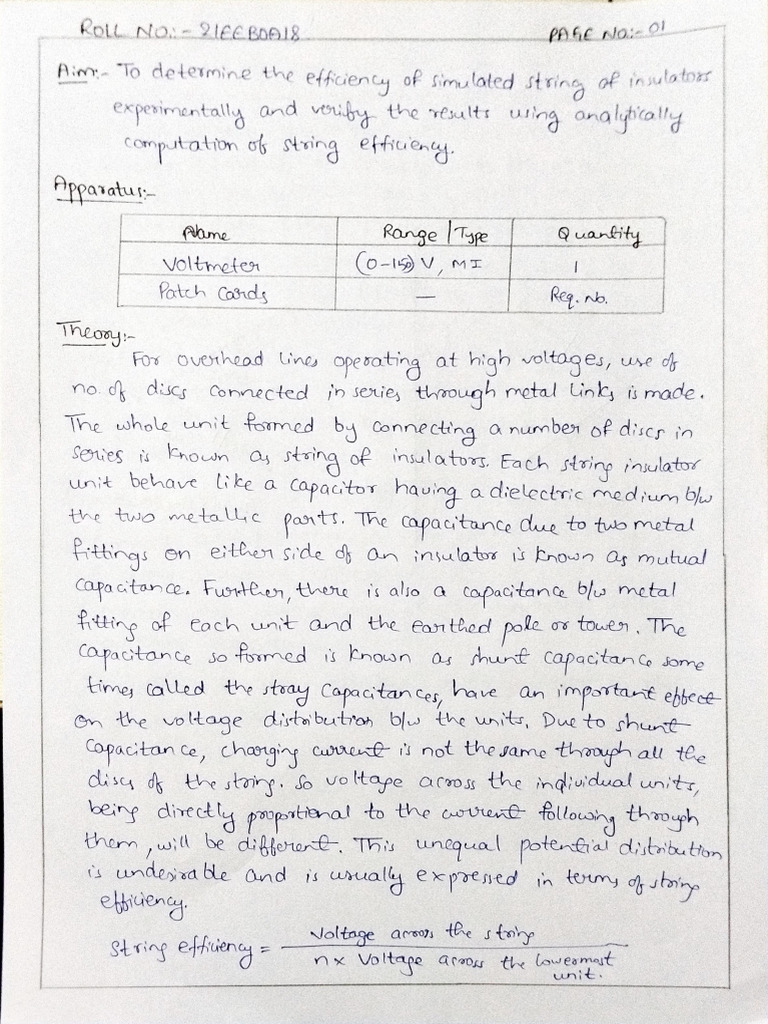 ROLL NO.:- 21EEB0A18 PAGE NO:- 01
Aim:- To determine the efficiency of simulated string of insulators
experimentally and verify the results using analytically
computation of string efficiency.
Apparatus:-
Name Range/Type Quantity
Voltmeter (0-150) V, MI 1
Patch Cards — Req. no.
Theory:-
For overhead lines operating at high voltages, use of
no. of discs connected in series through metal links is made.
The whole unit formed by connecting a number of discs in
series is known as string of insulators. Each string insulator
unit behave like a capacitor having a dielectric medium b/w
the two metallic parts. The capacitance due to two metal
fittings on either side of an insulator is known as mutual
capacitance. Further, there is also a capacitance b/w metal
fitting of each unit and the earthed pole or tower. The
capacitance so formed is known as shunt capacitance some
times called the stray capacitances, have an important effect
on the voltage distribution b/w the units. Due to shunt
capacitance, charging current is not the same through all the
discs of the string. So voltage across the individual units,
being directly proportional to the current following through
them, will be different. This unequal potential distribution
is undesirable and is usually expressed in terms of string
efficiency.
String efficiency = Voltage across the string
n× Voltage across the lowermost
unit.